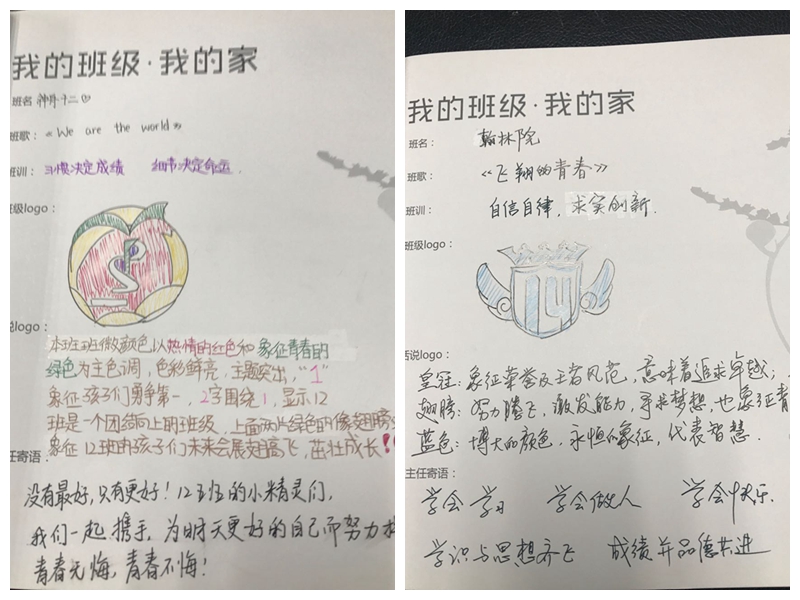 我的班级·我的家
班名
班歌：《We are the world》
班训：习惯决定成绩 细节决定命运.
级logo：
说logo：
本班班徽颜色以热情的红色和象征青春的
绿色为主色调，色彩鲜亮，主题突出，“1”
象征孩子们勇争第一，2字围绕1，显示12
班是一个团结向上的班级，上面两片绿色的像翅膀
象征12班的孩子们未来会展翅高飞，茁壮成长！
任寄语：
没有最好，只有更好！12班的小精灵们，
我们一起携手，为明天更好的自己而努力
青春无悔，青春不悔！
我的班级·我的家
班名：翰林院
班歌：《飞翔的青春》
班训：自信自律，求实创新.
班级logo：
14
话说logo：
皇冠：象征荣誉及王者风范，意味着追求卓越；
翅膀：努力腾飞，激发能力，寻求梦想，也象征青
蓝色：博大的颜色，永恒的象征，代表智慧.
主任寄语：
学会学习 学会做人 学会快乐
学识与思想齐飞 成绩并品德共进